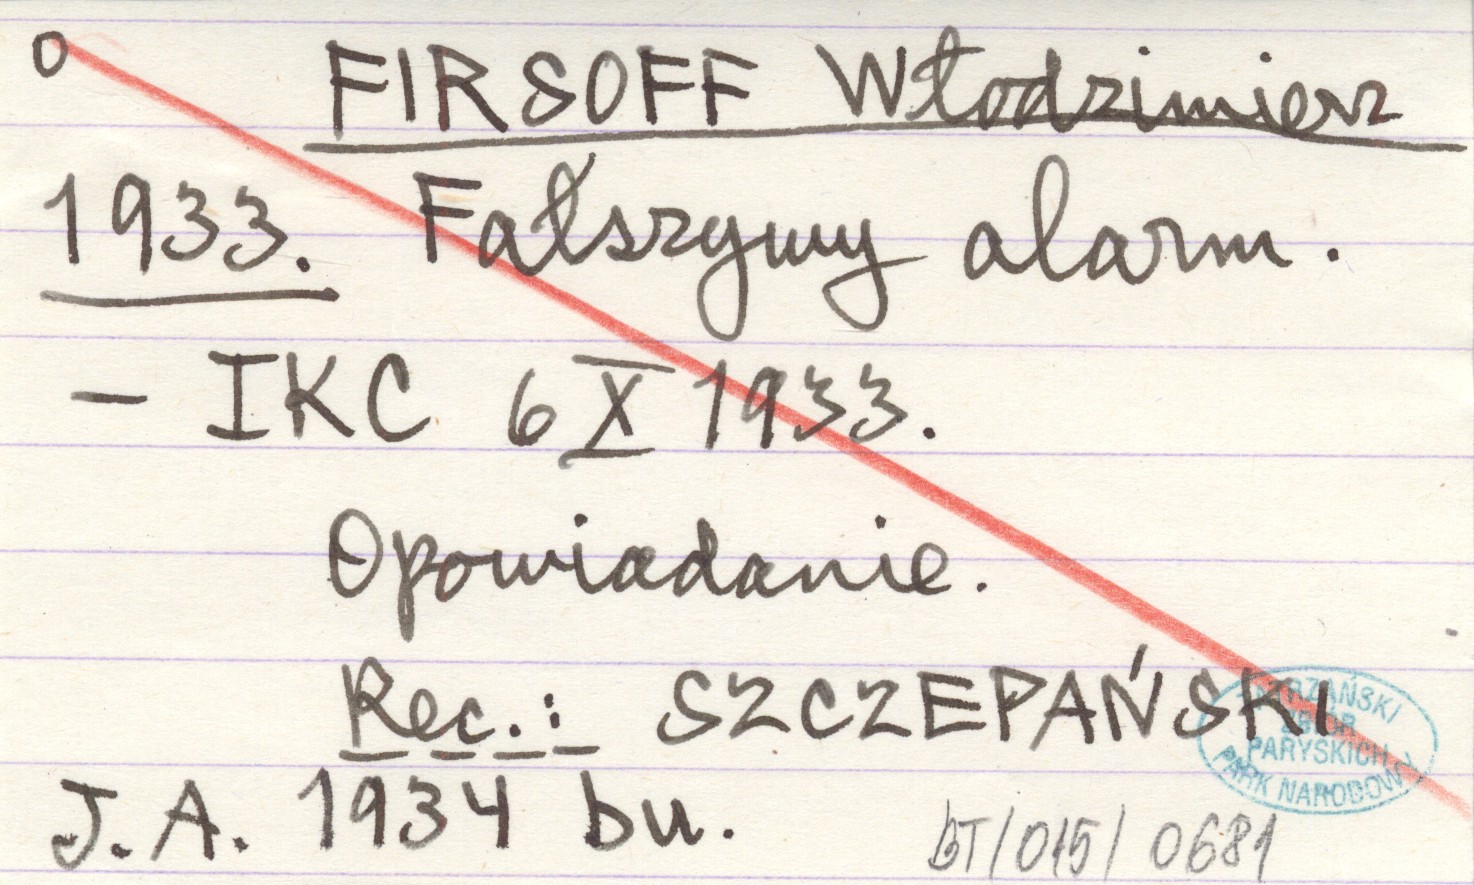 o FIRSOFF Włodzimierz
1933. Fałszywy alarm.
- IKC 6 X 1933.
Opowiadanie.
Rec.: SZCZEPAŃSKI
J.A. 1934 bu.
TATRZAŃSKI
ZBIÓR
PARYSKICH
PARK NARODOWY
BT/015/0681